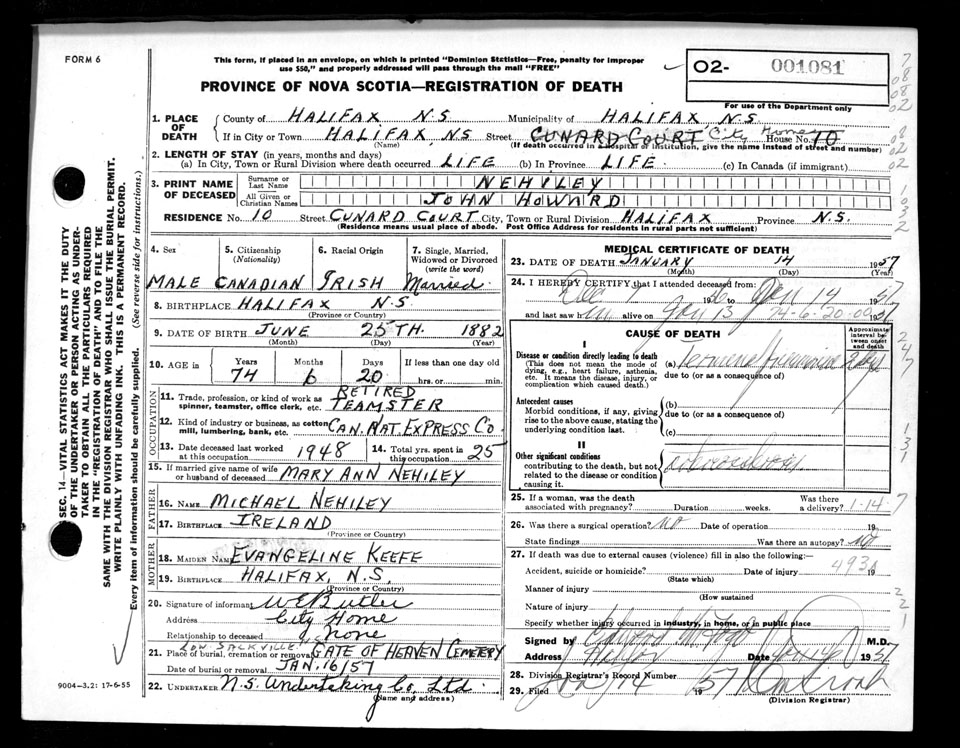 FORM 6
This form, if placed in an envelope, on which is printed "Dominion Statistics—Free, penalty for improper
use $50," and properly addressed will pass through the mail "FREE"
O2- 001081
For use of the Department only
PROVINCE OF NOVA SCOTIA—REGISTRATION OF DEATH
1. PLACE OF DEATH
County of HALIFAX N.S. Municipality of HALIFAX N.S.
If in City or Town HALIFAX N.S Street CUNARD COURT City Home House No. 10
(Name) (If death occurred in a hospital or institution, give the name instead of street and number)
2. LENGTH OF STAY (in years, months and days)
(a) In City, Town or Rural Division where death occurred LIFE (b) In Province LIFE. (c) In Canada (if immigrant)
3. PRINT NAME OF DECEASED
Surname or Last Name NEHILEY
All Given or Christian Names JOHN HOWARD
RESIDENCE No. 10 Street CUNARD COURT City, Town or Rural Division HALIFAX Province N.S.
(Residence means usual place of abode. Post Office Address for residents in rural parts not sufficient)
4. Sex 5. Citizenship (Nationality) 6. Racial Origin 7. Single, Married, Widowed or Divorced (write the word)
MALE CANADIAN IRISH Married.
8. BIRTHPLACE HALIFAX N.S.
(Province or Country)
9. DATE OF BIRTH JUNE 25TH. 1882
(Month) (Day) (Year)
10. AGE in Years Months Days If less than one day old
74 6 20 hrs. or min.
OCCUPATION
11. Trade, profession, or kind of work as spinner, teamster, office clerk, etc. RETIRED TEAMSTER
12. Kind of industry or business, as cotton mill, lumbering, bank, etc. CAN. NAT. EXPRESS CO
13. Date deceased last worked at this occupation 1948 14. Total yrs. spent in this occupation 25
15. If married give name of wife or husband of deceased MARY ANN NEHILEY
FATHER
16. NAME MICHAEL NEHILEY
17. BIRTHPLACE IRELAND
(Province or Country)
MOTHER
18. MAIDEN NAME EVANGELINE KEEFE
19. BIRTHPLACE HALIFAX, N.S.
(Province or Country)
20. Signature of informant W E Butler
Address City Home
Relationship to deceased None
LOW SACKVILLE
21. Place of burial, cremation or removal GATE OF HEAVEN CEMETERY
Date of burial or removal JAN. 16/57
22. UNDERTAKER N.S. Undertaking Co, Ltd.
(Name and address)
MEDICAL CERTIFICATE OF DEATH
23. DATE OF DEATH JANUARY 14 1957
(Month) (Day) (Year)
24. I HEREBY CERTIFY that I attended deceased from:
Dec 1 Jan 14 57
and last saw h alive on Jan 13
CAUSE OF DEATH
Approximate interval between onset and death
I
Disease or condition directly leading to death
(This does not mean the mode of dying, e.g., heart failure, asthenia, etc. It means the disease, injury, or complication which caused death.)
(a)
due to (or as a consequence of)
Antecedent causes
Morbid conditions, if any, giving rise to the above cause, stating the underlying condition last.
(b)
due to (or as a consequence of)
(c)
II
Other significant conditions
contributing to the death, but not related to the disease or condition causing it.
25. If a woman, was the death associated with pregnancy? Duration weeks. Was there a delivery? 1-14-7
26. Was there a surgical operation? no Date of operation 19
State findings Was there an autopsy? no
27. If death was due to external causes (violence) fill in also the following:—
Accident, suicide or homicide? Date of injury 19
(State which)
493
Manner of injury
(How sustained
Nature of injury
Specify whether injury occurred in industry, in home, or in public place
Signed by M.D.
Address Halifax Date Jan 14 1957
28. Division Registrar's Record Number
29. Filed Jan 14 1957
(Division Registrar)
SEC. 14—VITAL STATISTICS ACT MAKES IT THE DUTY
OF THE UNDERTAKER OR PERSON ACTING AS UNDERTAKER TO OBTAIN ALL THE PARTICULARS REQUIRED
IN THE "REGISTRATION OF DEATH" AND TO FILE THE
SAME WITH THE DIVISION REGISTRAR WHO SHALL ISSUE THE BURIAL PERMIT.
WRITE PLAINLY WITH UNFADING INK. THIS IS A PERMANENT RECORD.
Every item of information should be carefully supplied. (See reverse side for instructions.)
9004—3.2: 17-6-55